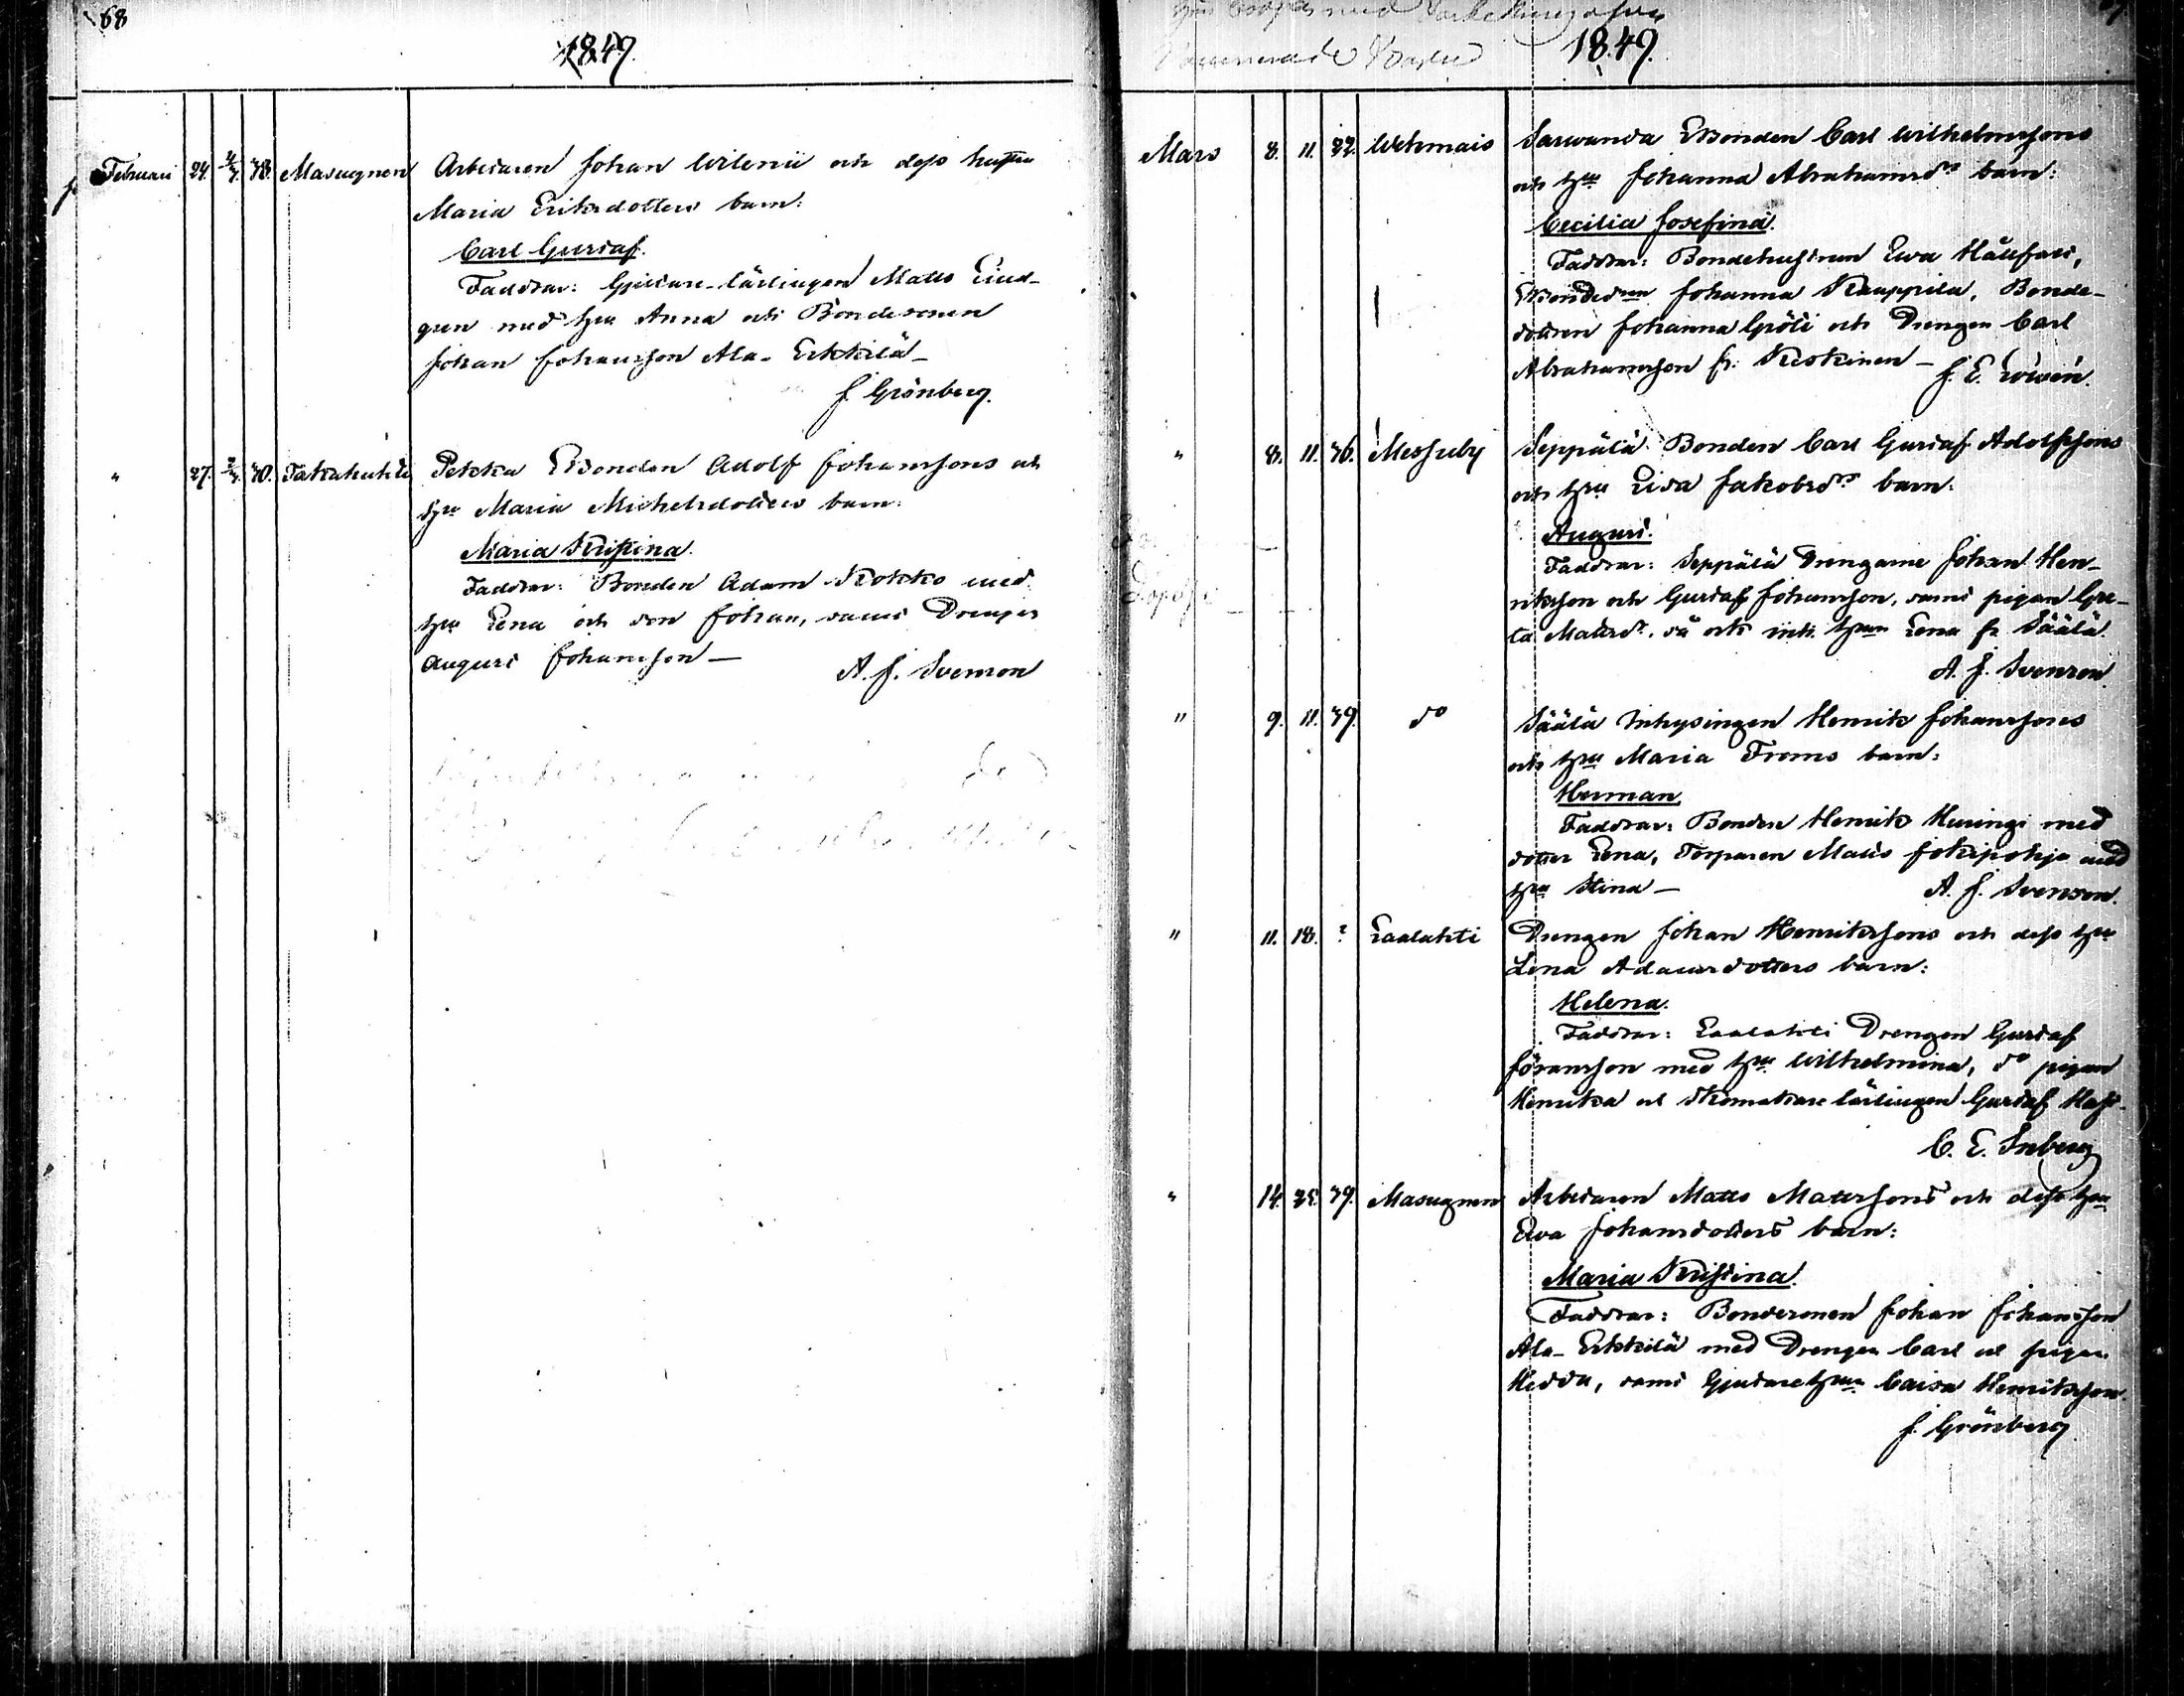 68
1849.
Februari 24. 4/3. 38. Masugnen Arbetaren Johan Wilenii och dess hustru
Maria Eriksdotters barn:
Carl Gustaf.
Faddrar: Gjutare-lärlingen Matts Lind-
gren med hru Anna och Bondesonen
Johan Johansson Ala-Erkkilä–
J. Grönberg.
" 27. 30. Takahuhti Pekka Bonden Adolf Johanssons och
hru Maria Michelsdotters barn:
Maria Kristina.
Faddrar: Bonden Adam Kokko med
hru Lena och son Johan, samt Drengen
August Johansson–
A. J. Svenson
1849.
Mars 8. 11. 22. Wehmais Sarwanda Bonden Carl Wilhelmssons
och hru Johanna Abrahamsdrs barn:
Cecilia Josefina.
Faddrar: Bondehustrun Ewa
Johanna Kauppila, Bonde-
dottren Johanna Gröti och Drengen Carl
Abrahamsson fr. Keskinen–
J. E. Lowén.
" 8. 11. 36. Messuby Seppälä Bonden Carl Gustaf Adolfssons
och hru Lisa Jakobsdrs barn:
August.
Faddrar: Seppälä Drengarne Johan Hen-
riksson och Gustaf Johansson, samt pigan Gre-
ta Mattsdr, så och inh. hrun Lena fr Säälä.
A. J. Svenson
" 9. 11. 39. do Säälä Inhysingen Henrik Johanssons
och hru Maria Froms barn:
Herman.
Faddrar: Bonden Henrik Huringi med
dotter Lena, Torparen Matts Jokipohja med
hru Stina–
A. J. Svenson.
" 11. 18. ? Laalahti Drengen Johan Henrikssons och dess hru
Lena Adamsdotters barn:
Helena.
Faddrar: Laalahti Drengen Gustaf
Göransson med hru Wilhelmina, do pigan
Henrika och Skomakare lärlingen Gustaf
C. E. Inberg
" 14. 25. 39. Masugnen Arbetaren Matts Mattssons och dess hru
Ewa Johansdotters barn:
Maria Kristina.
Faddrar: Bondesonen Johan Johansson
Ala-Erkkilä med Drengen Carl och pigan
Hedda, samt Gjutarehrun Caisa Henriksson.
J. Grönberg